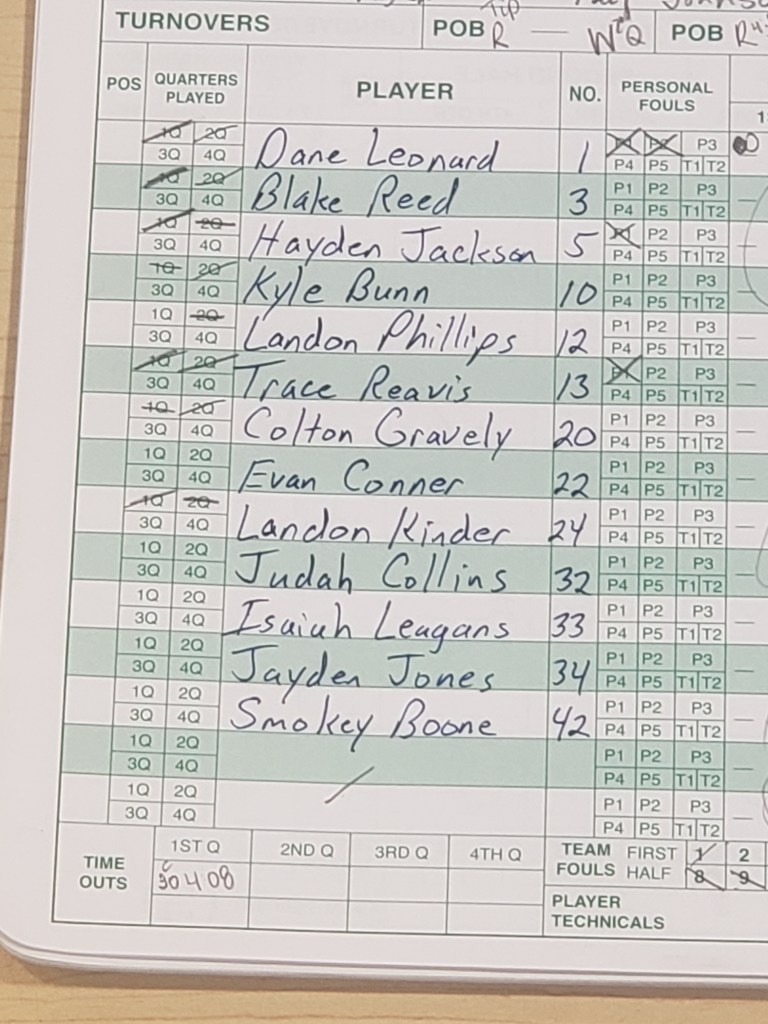 Tip
TURNOVERS POB R — W 2Q POB R
POS QUARTERS PLAYED PLAYER NO. PERSONAL FOULS
1Q 2Q Dane Leonard 1 P1 P2 P3
3Q 4Q P4 P5 T1 T2
1Q 2Q Blake Reed 3 P1 P2 P3
3Q 4Q P4 P5 T1 T2
1Q 2Q Hayden Jackson 5 P1 P2 P3
3Q 4Q P4 P5 T1 T2
1Q 2Q Kyle Bunn 10 P1 P2 P3
3Q 4Q P4 P5 T1 T2
1Q 2Q Landon Phillips 12 P1 P2 P3
3Q 4Q P4 P5 T1 T2
1Q 2Q Trace Reavis 13 P1 P2 P3
3Q 4Q P4 P5 T1 T2
1Q 2Q Colton Gravely 20 P1 P2 P3
3Q 4Q P4 P5 T1 T2
1Q 2Q Evan Conner 22 P1 P2 P3
3Q 4Q P4 P5 T1 T2
1Q 2Q Landon Kinder 24 P1 P2 P3
3Q 4Q P4 P5 T1 T2
1Q 2Q Judah Collins 32 P1 P2 P3
3Q 4Q P4 P5 T1 T2
1Q 2Q Isaiah Leagans 33 P1 P2 P3
3Q 4Q P4 P5 T1 T2
1Q 2Q Jayden Jones 34 P1 P2 P3
3Q 4Q P4 P5 T1 T2
1Q 2Q Smokey Boone 42 P1 P2 P3
3Q 4Q P4 P5 T1 T2
1Q 2Q P1 P2 P3
3Q 4Q P4 P5 T1 T2
1Q 2Q P1 P2 P3
3Q 4Q P4 P5 T1 T2
TIME OUTS 1ST Q 2ND Q 3RD Q 4TH Q TEAM FOULS FIRST HALF 1 2
30 408 8 9
PLAYER TECHNICALS